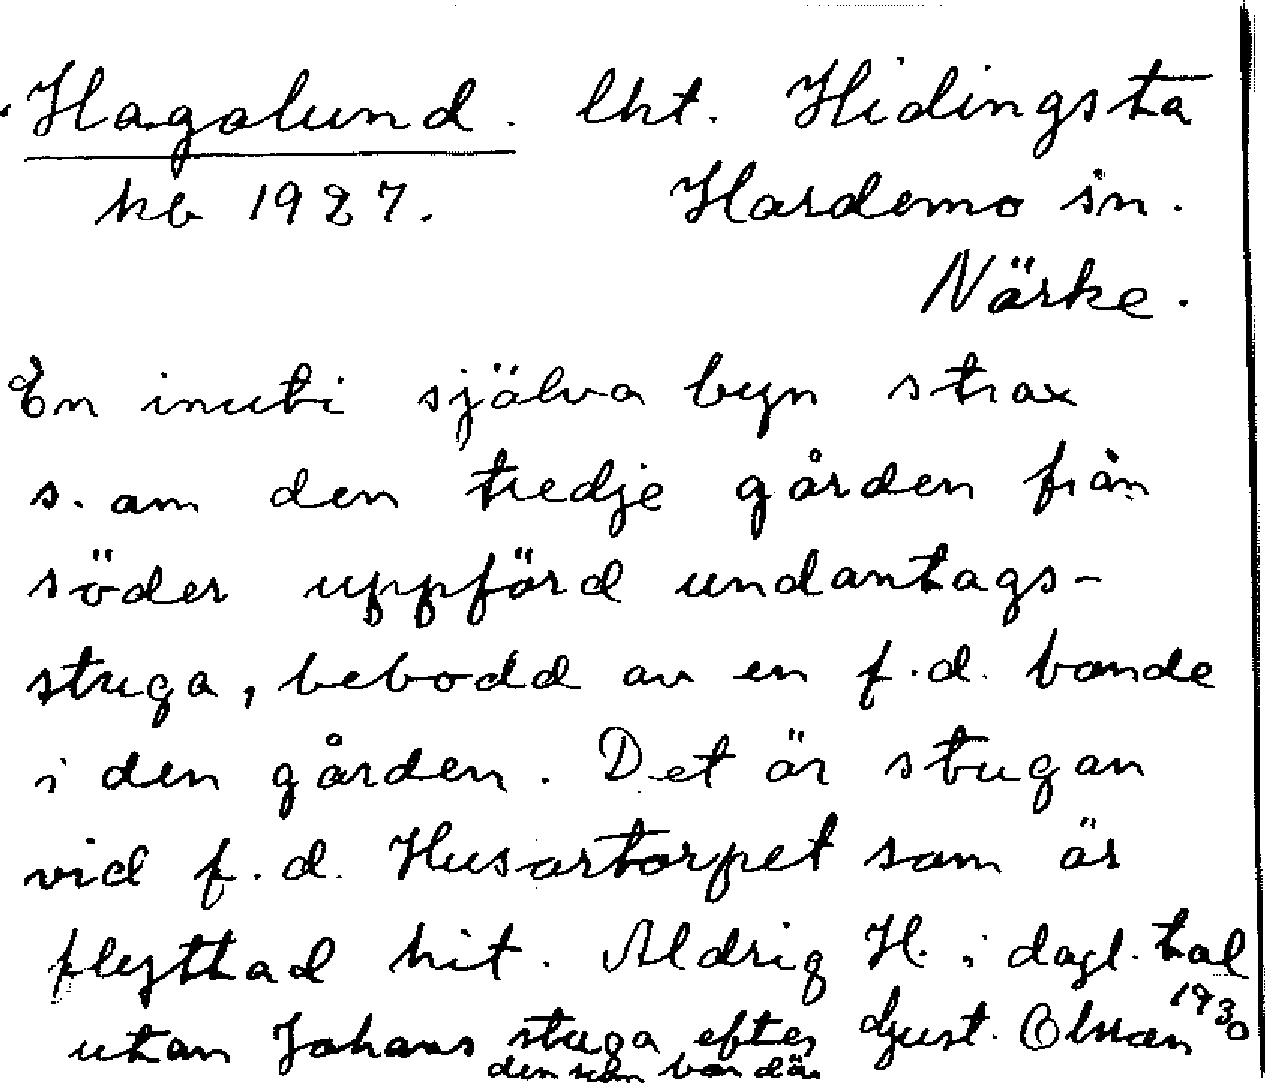 Hagalund. lht. Hidingsta
hb 1927. Hardemo sn.
Närke.
En inuti själva byn strax
s. om den tredje gården från
söder uppförd undantags-
stuga, bebodd av en f.d. bonde
i den gården. Det är stugan
vid f.d. Husartorpet som är
flyttad hit. Aldrig H. i dagl. tal
utan Johans stuga efter Gust. Olsson 1930
den som bor där